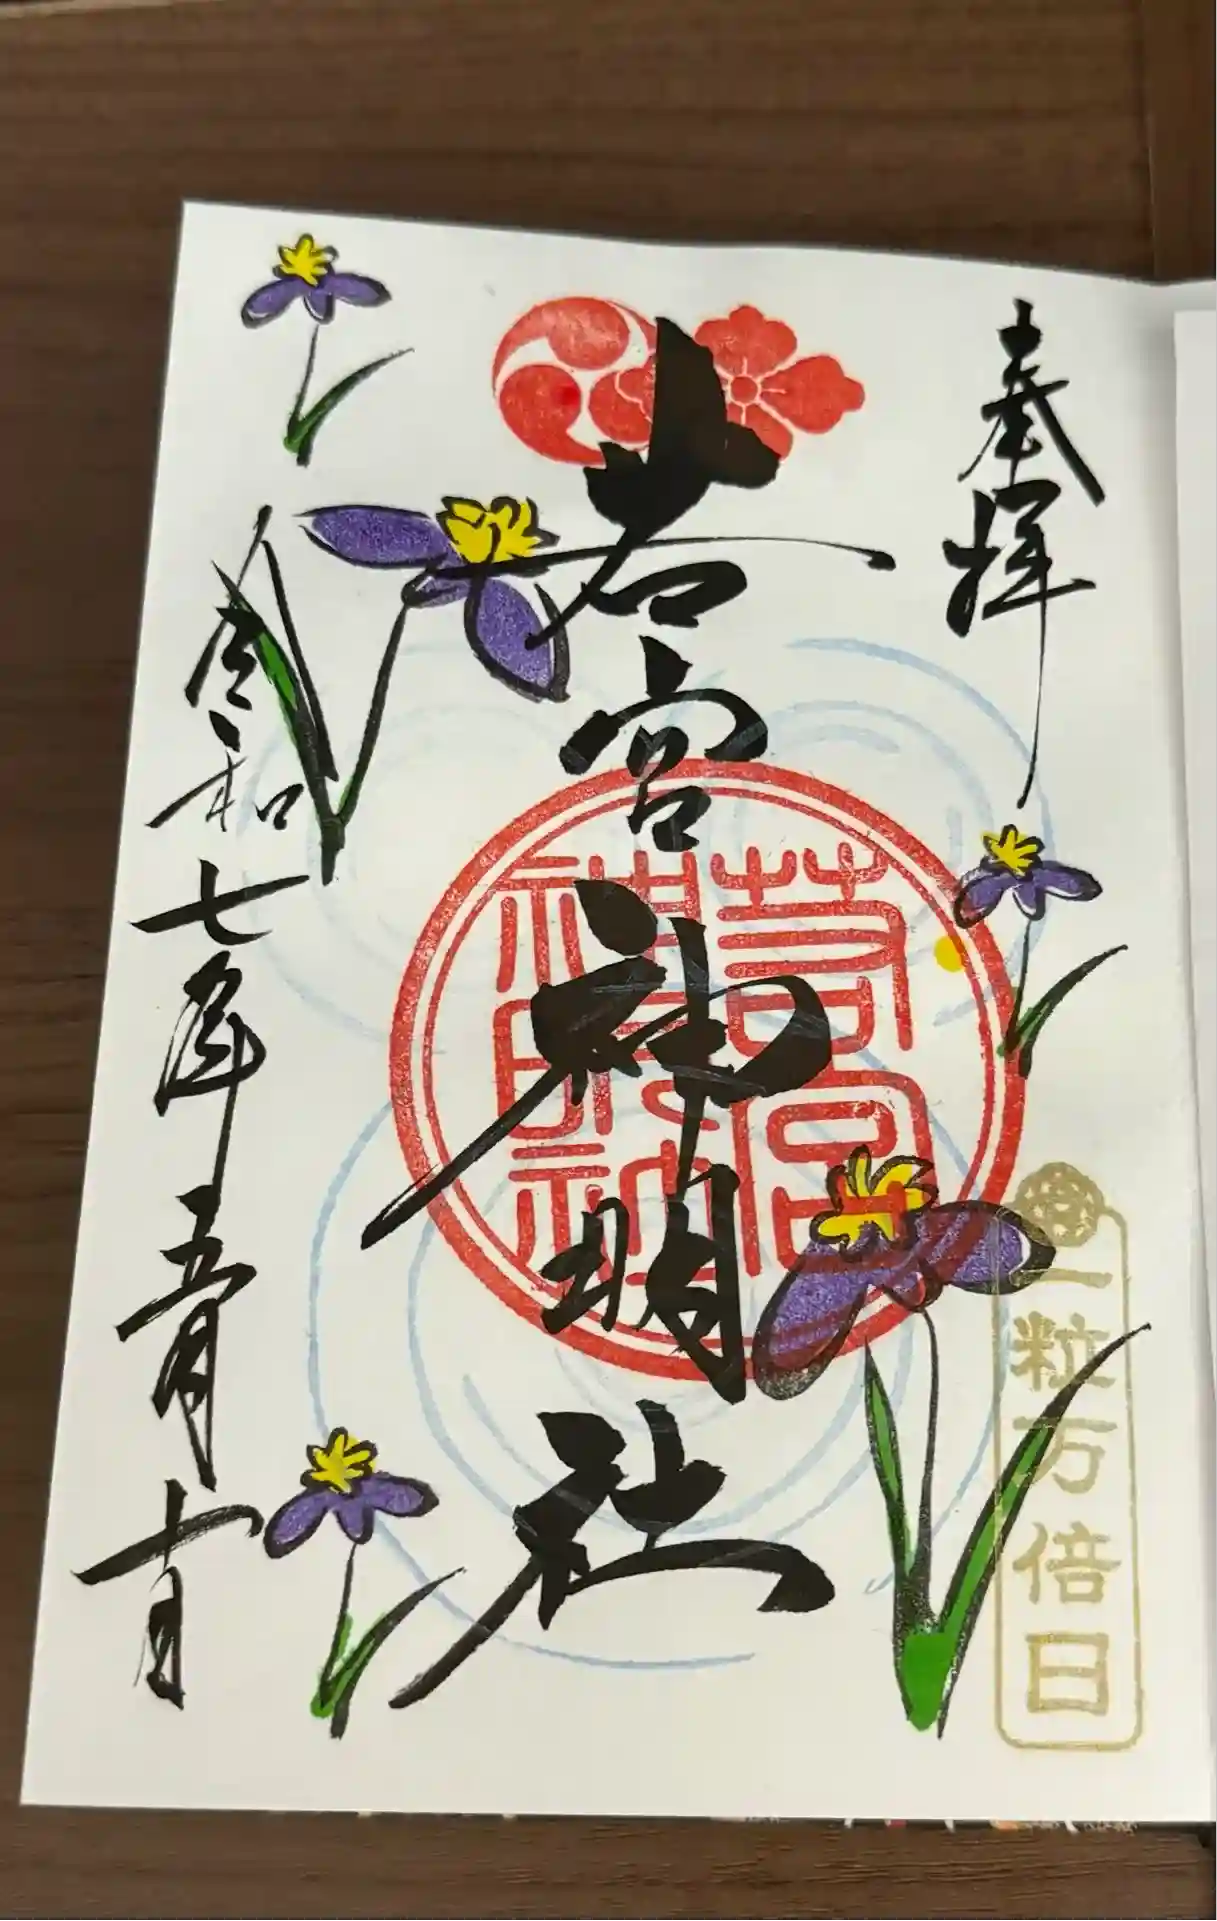 奉拝
一粒万倍日
若宮神明社
若宮神明社
令和七年五月十一日